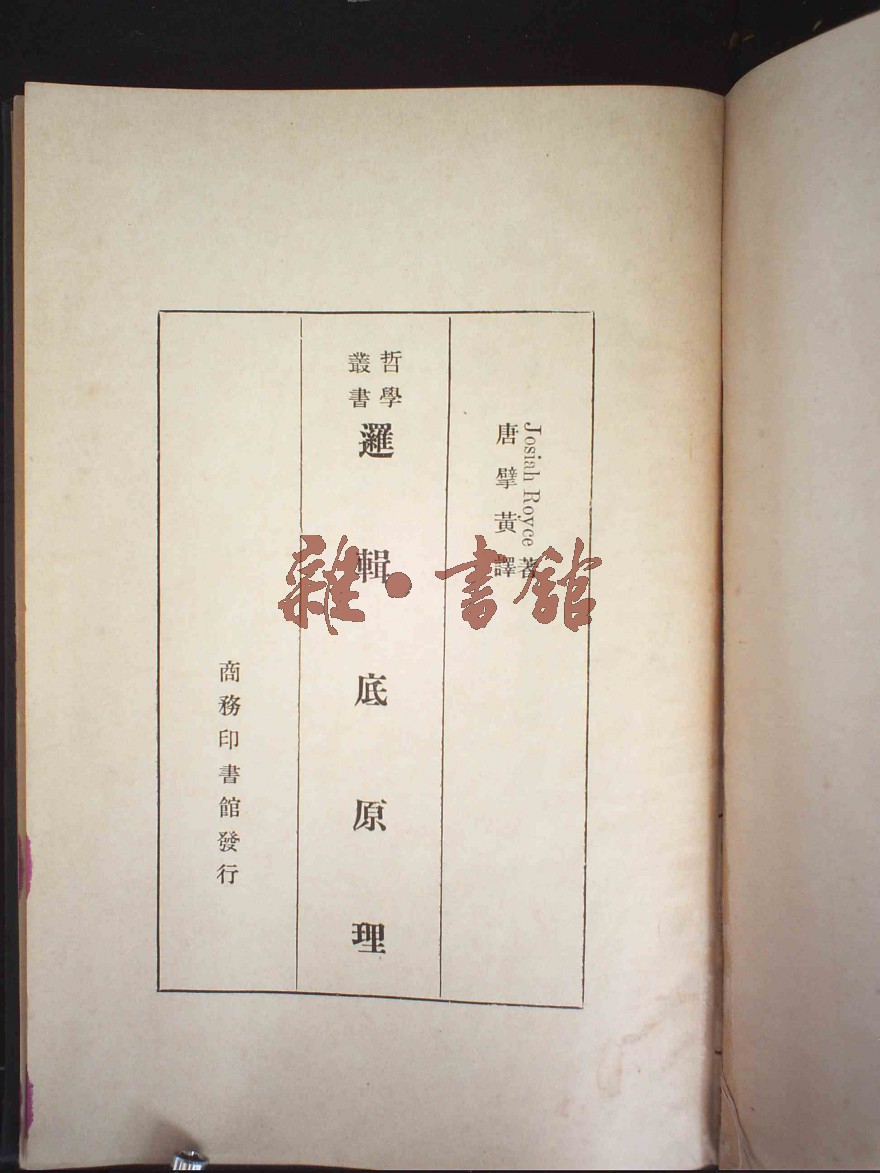 Josiah Royce 著
唐擘黃譯
哲學
叢書
邏輯底原理
商務印書館發行
雜·書館